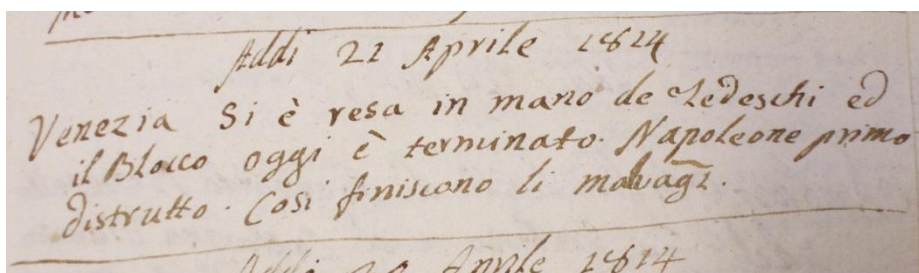 Addi 21 Aprile 1814
Venezia Si è resa in mano de Tedeschi ed
il Blocco oggi è terminato. Napoleone primo
distrutto. Cosi finiscono li malvagi.
Aprile 1814